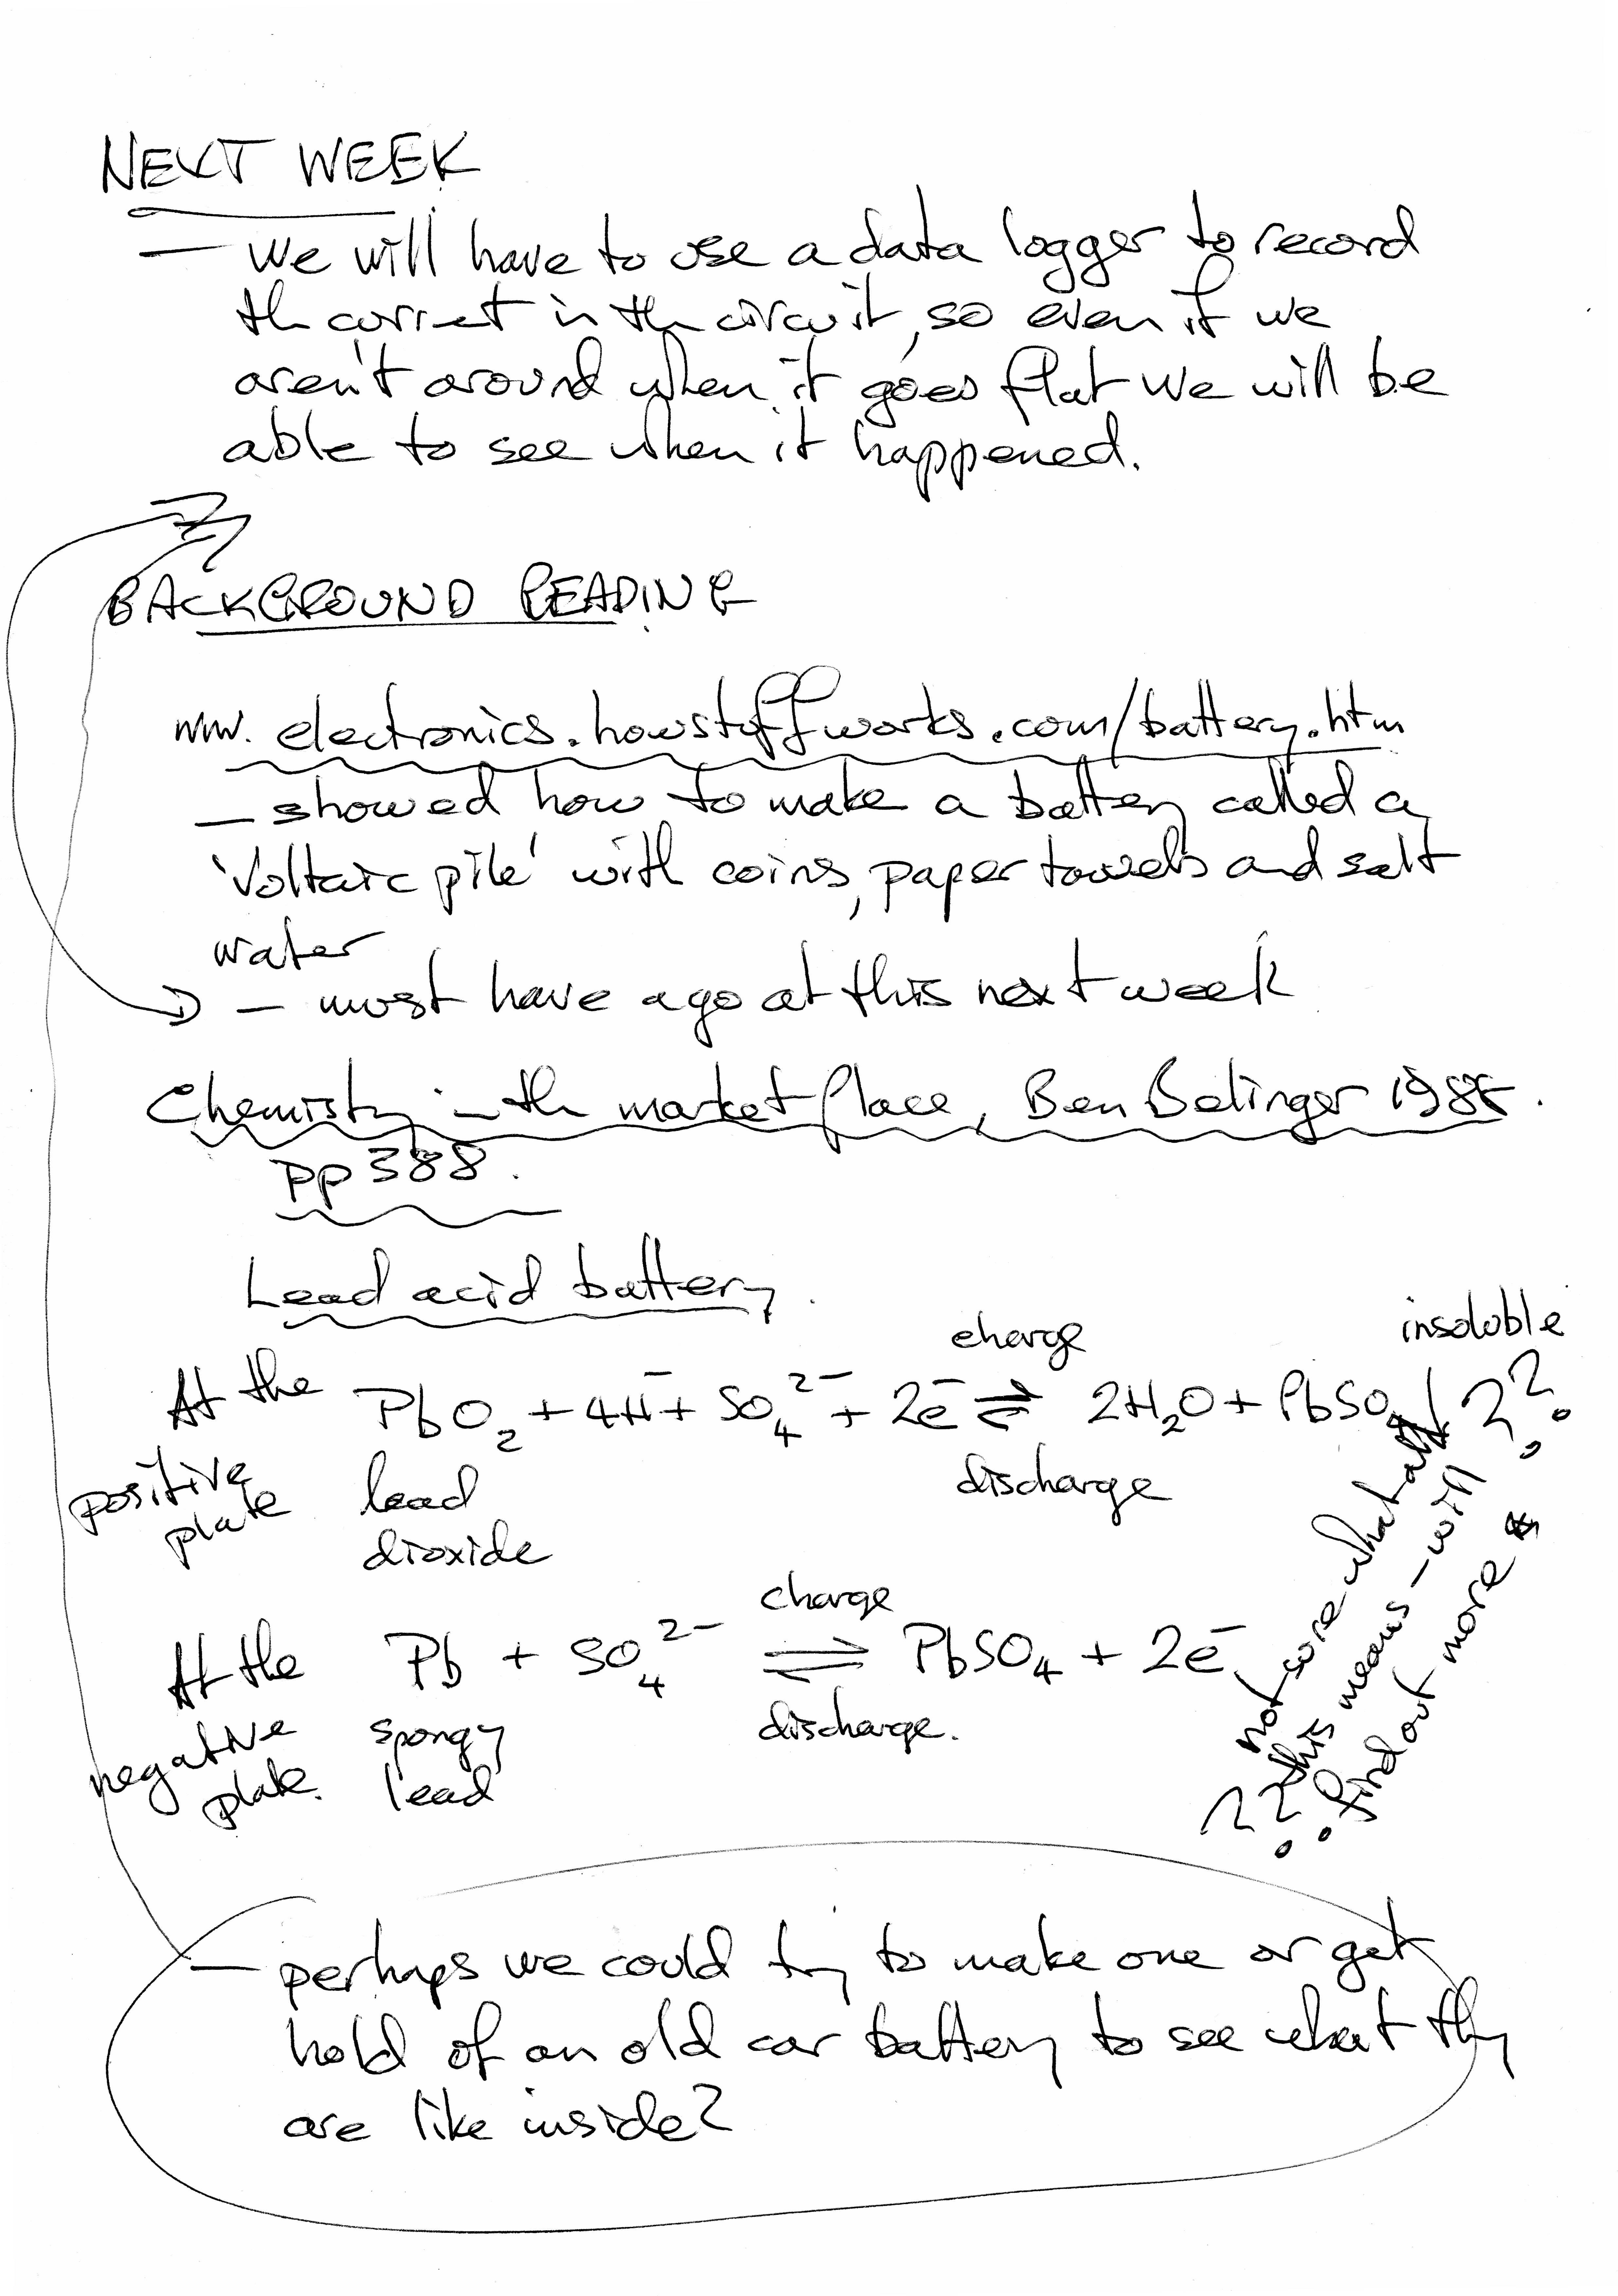 NEXT WEEK
— We will have to use a data logger to record
the current in the circuit, so even if we
aren't around when it goes flat we will be
able to see when it happened.
BACKGROUND READING
www.electronics.howstuffworks.com/battery.htm
— showed how to make a battery called a
'Voltaic pile' with coins, paper towels and salt
water
— must have a go at this next week
Chemistry in the market place, Ben Selinger
pp 388.
Lead acid battery.
charge insoluble
At the PbO₂ + 4H⁻ + SO₄²⁻ + 2e⁻ ⇌ 2H₂O + PbSO₄↓ ??
positive lead discharge
plate dioxide
charge
At the Pb + SO₄²⁻ ⇌ PbSO₄ + 2e⁻
negative spongy discharge.
plate. lead
?? not sure what all
this means — will
find out more *
— perhaps we could try to make one or get
hold of an old car battery to see what they
are like inside?